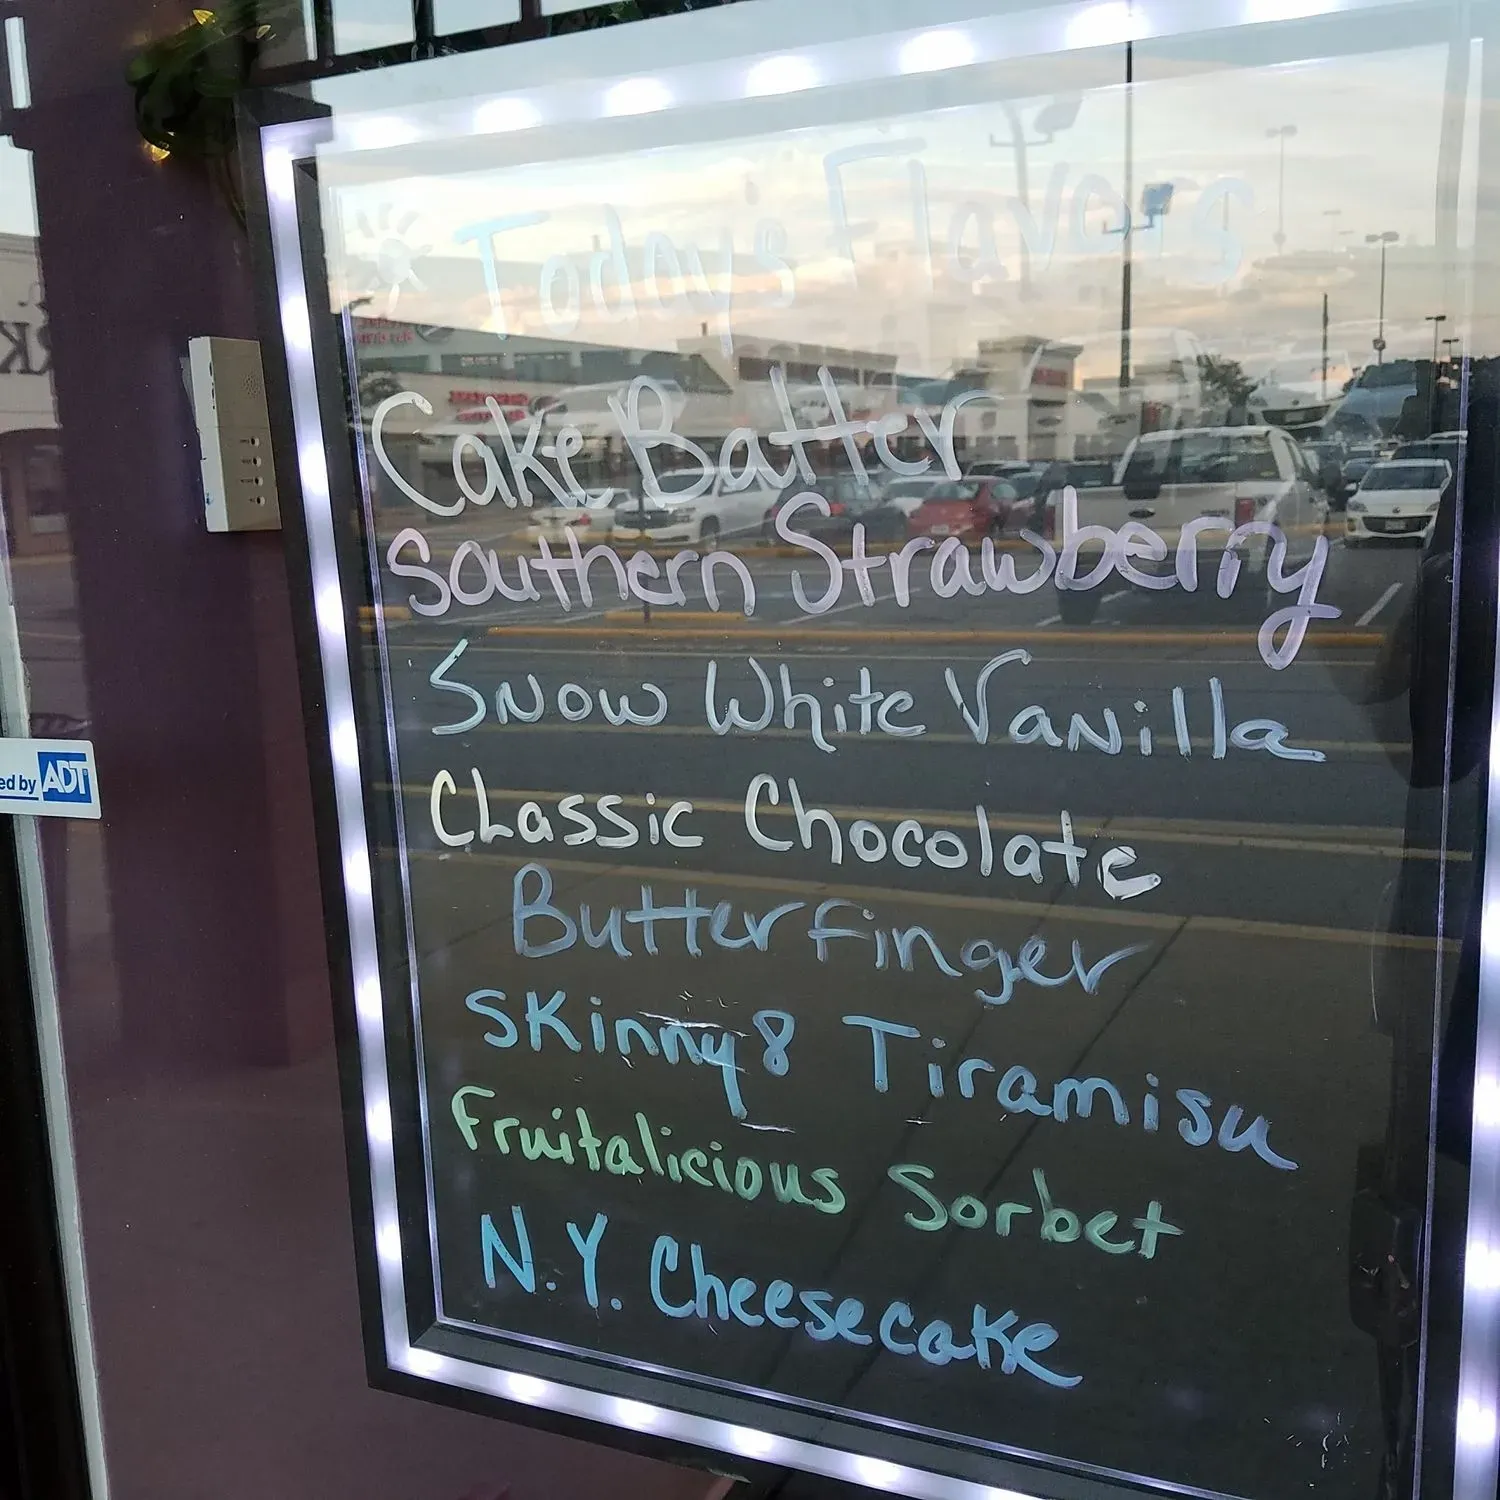 Today's Flavors
Cake Batter
Southern Strawberry
Snow White Vanilla
Classic Chocolate
Butterfinger
Skinny8 Tiramisu
Fruitalicious Sorbet
N.Y. Cheesecake
ed by ADT